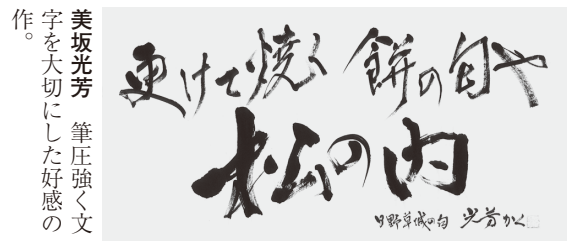 美坂光芳　筆圧強く文
字を大切にした好感の
作。
更けて焼く餅の匂や
松の内
日野草城の句 光芳かく